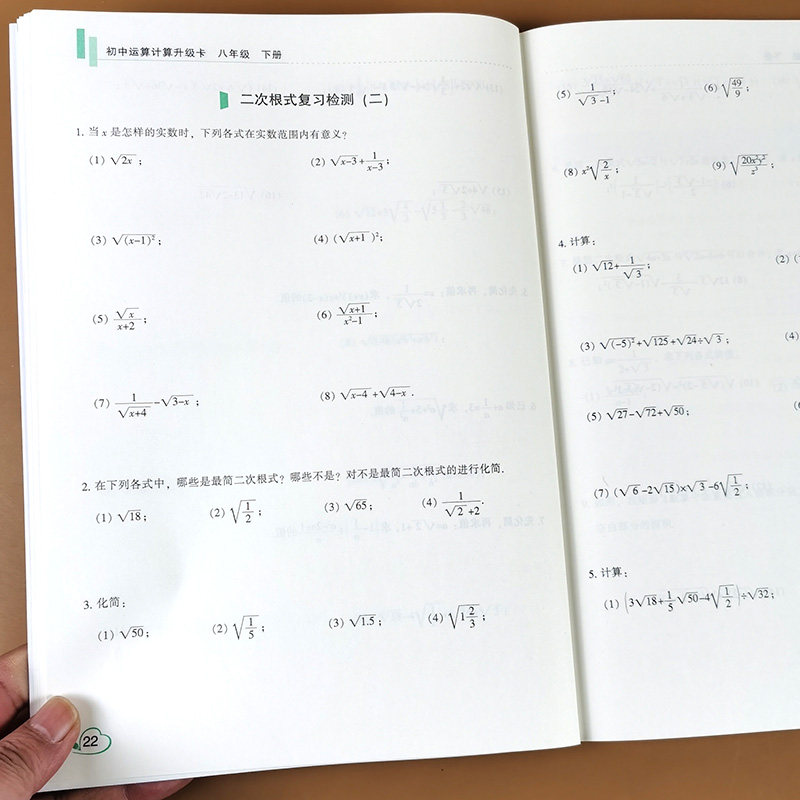 初中运算计算升级卡 八年级 下册
二次根式复习检测（二）
1. 当 x 是怎样的实数时，下列各式在实数范围内有意义？
(1) √(2x)； (2) √(x-3)+1/(x-3)；
(3) √((x-1)²)； (4) (√(x+1))²；
(5) √x/(x+2)； (6) √(x+1)/(x²-1)；
(7) 1/√(x+4)-√(3-x)； (8) √(x-4)+√(4-x).
2. 在下列各式中，哪些是最简二次根式？哪些不是？对不是最简二次根式的进行化简.
(1) √18； (2) √(1/2)； (3) √65； (4) 1/(√2+2).
3. 化简：
(1) √50； (2) √(1/5)； (3) √1.5； (4) √(1 2/3)；
22
(5) 1/(√3-1)； (6) √(49/9)；
(8) x²√(2/x)； (9) √(20x²y²/z³)；
4. 计算：
(1) √12+1/√3； (2) (
(3) √((-5)²)+√125+√24÷√3； (4)
(5) √27-√72+√50；
(7) (√6-2√15)×√3-6√(1/2)；
5. 计算：
(1) (3√18+1/5√50-4√(1/2))÷√32；